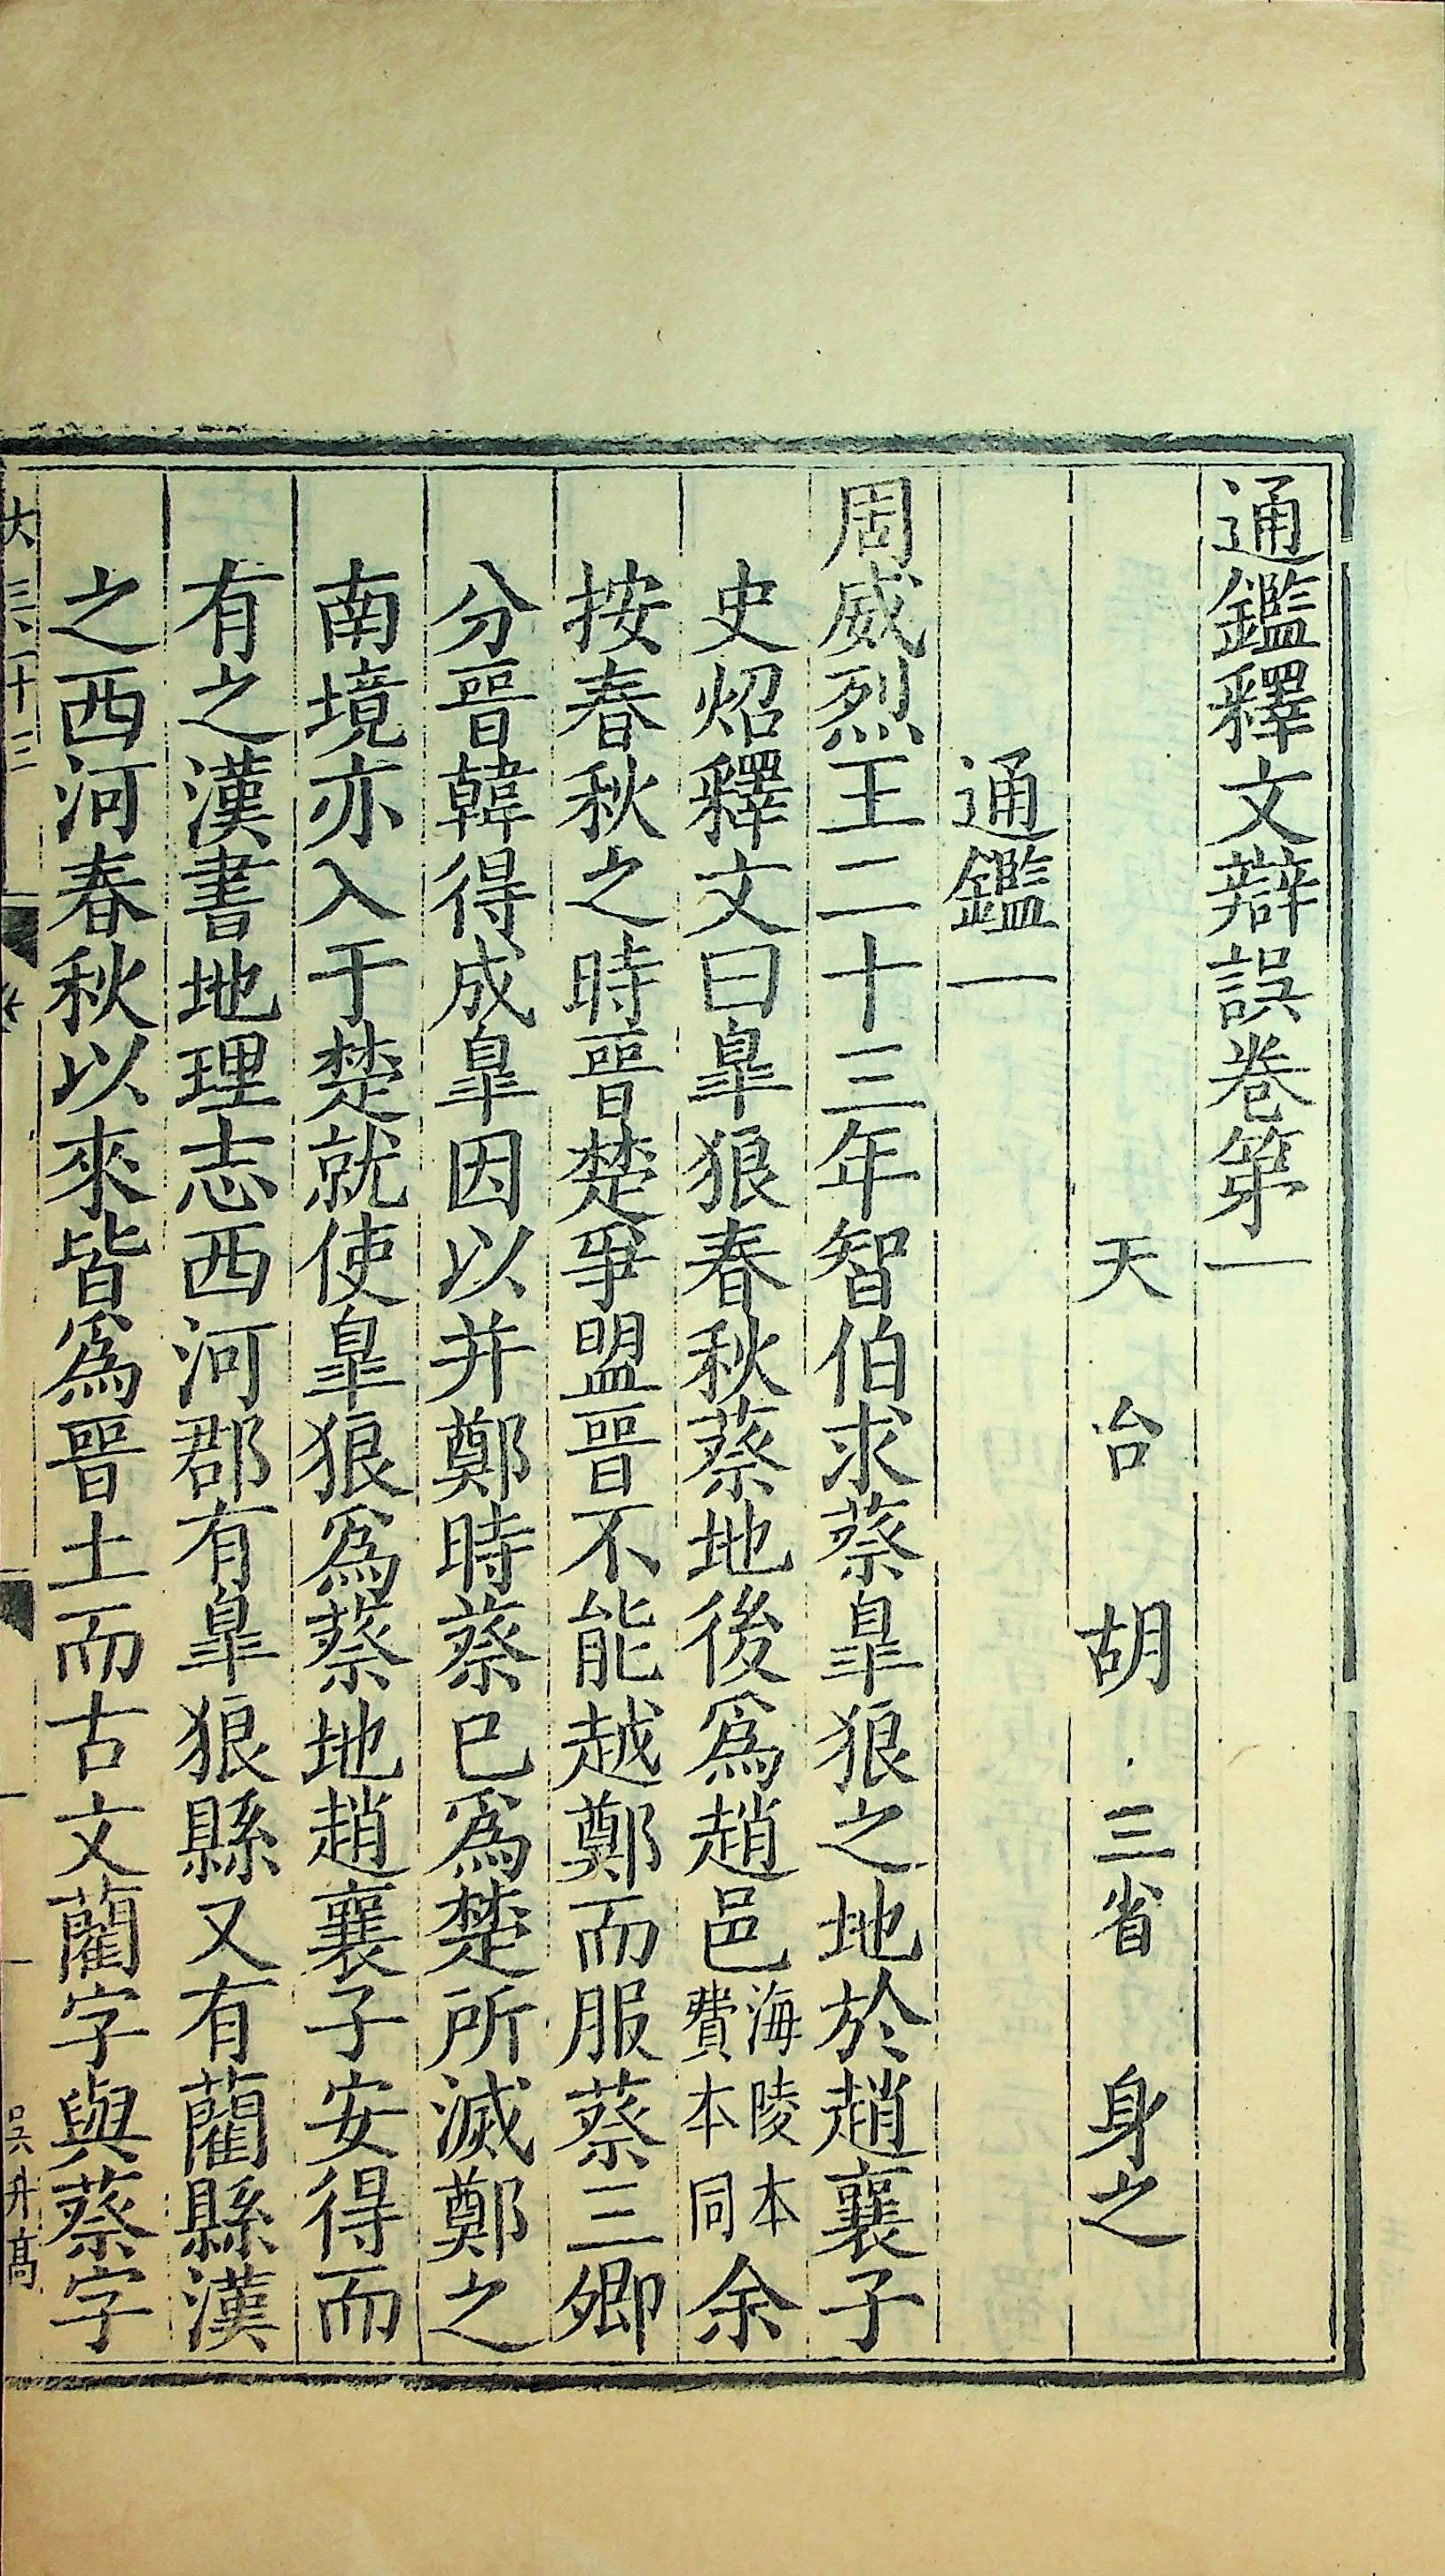 通鑑釋文辯誤卷第一
天台胡三省身之
通鑑一
周威烈王二十三年智伯求蔡皐狼之地於趙襄子
史炤釋文曰皐狼春秋蔡地後爲趙邑海陵本費本同余
按春秋之時晉楚爭盟晉不能越鄭而服蔡三卿
分晉韓得成皐因以并鄭時蔡已爲楚所滅鄭之
南境亦入于楚就使皐狼爲蔡地趙襄子安得而
有之漢書地理志西河郡有皐狼縣又有藺縣漢
之西河春秋以來皆爲晉土而古文藺字與蔡字
大三二十三
吴升髙